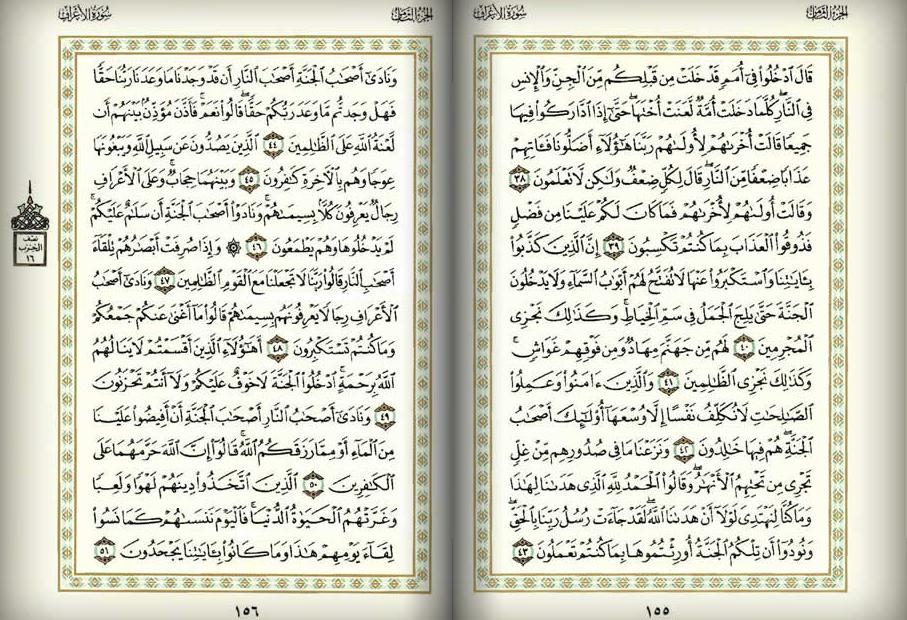 الجزء الثامن
سورة الأعراف
قَالَ ادْخُلُوا فِي أُمَمٍ قَدْ خَلَتْ مِن قَبْلِكُم مِّنَ الْجِنِّ وَالْإِنسِ
فِي النَّارِ ۖ كُلَّمَا دَخَلَتْ أُمَّةٌ لَّعَنَتْ أُخْتَهَا ۖ حَتَّىٰ إِذَا ادَّارَكُوا فِيهَا
جَمِيعًا قَالَتْ أُخْرَىٰهُمْ لِأُولَىٰهُمْ رَبَّنَا هَٰؤُلَاءِ أَضَلُّونَا فَـَٔاتِهِمْ
عَذَابًا ضِعْفًا مِّنَ النَّارِ ۖ قَالَ لِكُلٍّ ضِعْفٌ وَلَٰكِن لَّا تَعْلَمُونَ ٣٨
وَقَالَتْ أُولَىٰهُمْ لِأُخْرَىٰهُمْ فَمَا كَانَ لَكُمْ عَلَيْنَا مِن فَضْلٍ
فَذُوقُوا الْعَذَابَ بِمَا كُنتُمْ تَكْسِبُونَ ٣٩ إِنَّ الَّذِينَ كَذَّبُوا
بِـَٔايَٰتِنَا وَاسْتَكْبَرُوا عَنْهَا لَا تُفَتَّحُ لَهُمْ أَبْوَٰبُ السَّمَاءِ وَلَا يَدْخُلُونَ
الْجَنَّةَ حَتَّىٰ يَلِجَ الْجَمَلُ فِي سَمِّ الْخِيَاطِ ۚ وَكَذَٰلِكَ نَجْزِي
الْمُجْرِمِينَ ٤٠ لَهُم مِّن جَهَنَّمَ مِهَادٌ وَمِن فَوْقِهِمْ غَوَاشٍ ۚ
وَكَذَٰلِكَ نَجْزِي الظَّٰلِمِينَ ٤١ وَالَّذِينَ ءَامَنُوا وَعَمِلُوا
الصَّٰلِحَٰتِ لَا نُكَلِّفُ نَفْسًا إِلَّا وُسْعَهَا أُولَٰئِكَ أَصْحَٰبُ
الْجَنَّةِ ۖ هُمْ فِيهَا خَٰلِدُونَ ٤٢ وَنَزَعْنَا مَا فِي صُدُورِهِم مِّنْ غِلٍّ
تَجْرِي مِن تَحْتِهِمُ الْأَنْهَٰرُ ۖ وَقَالُوا الْحَمْدُ لِلَّهِ الَّذِي هَدَىٰنَا لِهَٰذَا
وَمَا كُنَّا لِنَهْتَدِيَ لَوْلَا أَنْ هَدَىٰنَا اللَّهُ ۖ لَقَدْ جَاءَتْ رُسُلُ رَبِّنَا بِالْحَقِّ ۖ
وَنُودُوا أَن تِلْكُمُ الْجَنَّةُ أُورِثْتُمُوهَا بِمَا كُنتُمْ تَعْمَلُونَ ٤٣
١٥٥
الجزء الثامن
سورة الأعراف
وَنَادَىٰ أَصْحَٰبُ الْجَنَّةِ أَصْحَٰبَ النَّارِ أَن قَدْ وَجَدْنَا مَا وَعَدَنَا رَبُّنَا حَقًّا
فَهَلْ وَجَدتُّم مَّا وَعَدَ رَبُّكُمْ حَقًّا ۖ قَالُوا نَعَمْ ۚ فَأَذَّنَ مُؤَذِّنٌ بَيْنَهُمْ أَن
لَّعْنَةُ اللَّهِ عَلَى الظَّٰلِمِينَ ٤٤ الَّذِينَ يَصُدُّونَ عَن سَبِيلِ اللَّهِ وَيَبْغُونَهَا
عِوَجًا وَهُم بِالْآخِرَةِ كَٰفِرُونَ ٤٥ وَبَيْنَهُمَا حِجَابٌ ۚ وَعَلَى الْأَعْرَافِ
رِجَالٌ يَعْرِفُونَ كُلًّا بِسِيمَىٰهُمْ ۚ وَنَادَوْا أَصْحَٰبَ الْجَنَّةِ أَن سَلَٰمٌ عَلَيْكُمْ ۚ
لَمْ يَدْخُلُوهَا وَهُمْ يَطْمَعُونَ ٤٦ ۞ وَإِذَا صُرِفَتْ أَبْصَٰرُهُمْ تِلْقَاءَ
أَصْحَٰبِ النَّارِ قَالُوا رَبَّنَا لَا تَجْعَلْنَا مَعَ الْقَوْمِ الظَّٰلِمِينَ ٤٧ وَنَادَىٰ أَصْحَٰبُ
الْأَعْرَافِ رِجَالًا يَعْرِفُونَهُم بِسِيمَىٰهُمْ قَالُوا مَا أَغْنَىٰ عَنكُمْ جَمْعُكُمْ
وَمَا كُنتُمْ تَسْتَكْبِرُونَ ٤٨ أَهَٰؤُلَاءِ الَّذِينَ أَقْسَمْتُمْ لَا يَنَالُهُمُ
اللَّهُ بِرَحْمَةٍ ۚ ادْخُلُوا الْجَنَّةَ لَا خَوْفٌ عَلَيْكُمْ وَلَا أَنتُمْ تَحْزَنُونَ
٤٩ وَنَادَىٰ أَصْحَٰبُ النَّارِ أَصْحَٰبَ الْجَنَّةِ أَنْ أَفِيضُوا عَلَيْنَا
مِنَ الْمَاءِ أَوْ مِمَّا رَزَقَكُمُ اللَّهُ ۚ قَالُوا إِنَّ اللَّهَ حَرَّمَهُمَا عَلَى
الْكَٰفِرِينَ ٥٠ الَّذِينَ اتَّخَذُوا دِينَهُمْ لَهْوًا وَلَعِبًا
وَغَرَّتْهُمُ الْحَيَوٰةُ الدُّنْيَا ۚ فَالْيَوْمَ نَنسَىٰهُمْ كَمَا نَسُوا
لِقَاءَ يَوْمِهِمْ هَٰذَا وَمَا كَانُوا بِـَٔايَٰتِنَا يَجْحَدُونَ ٥١
نصف
الحزب
١٦
١٥٦